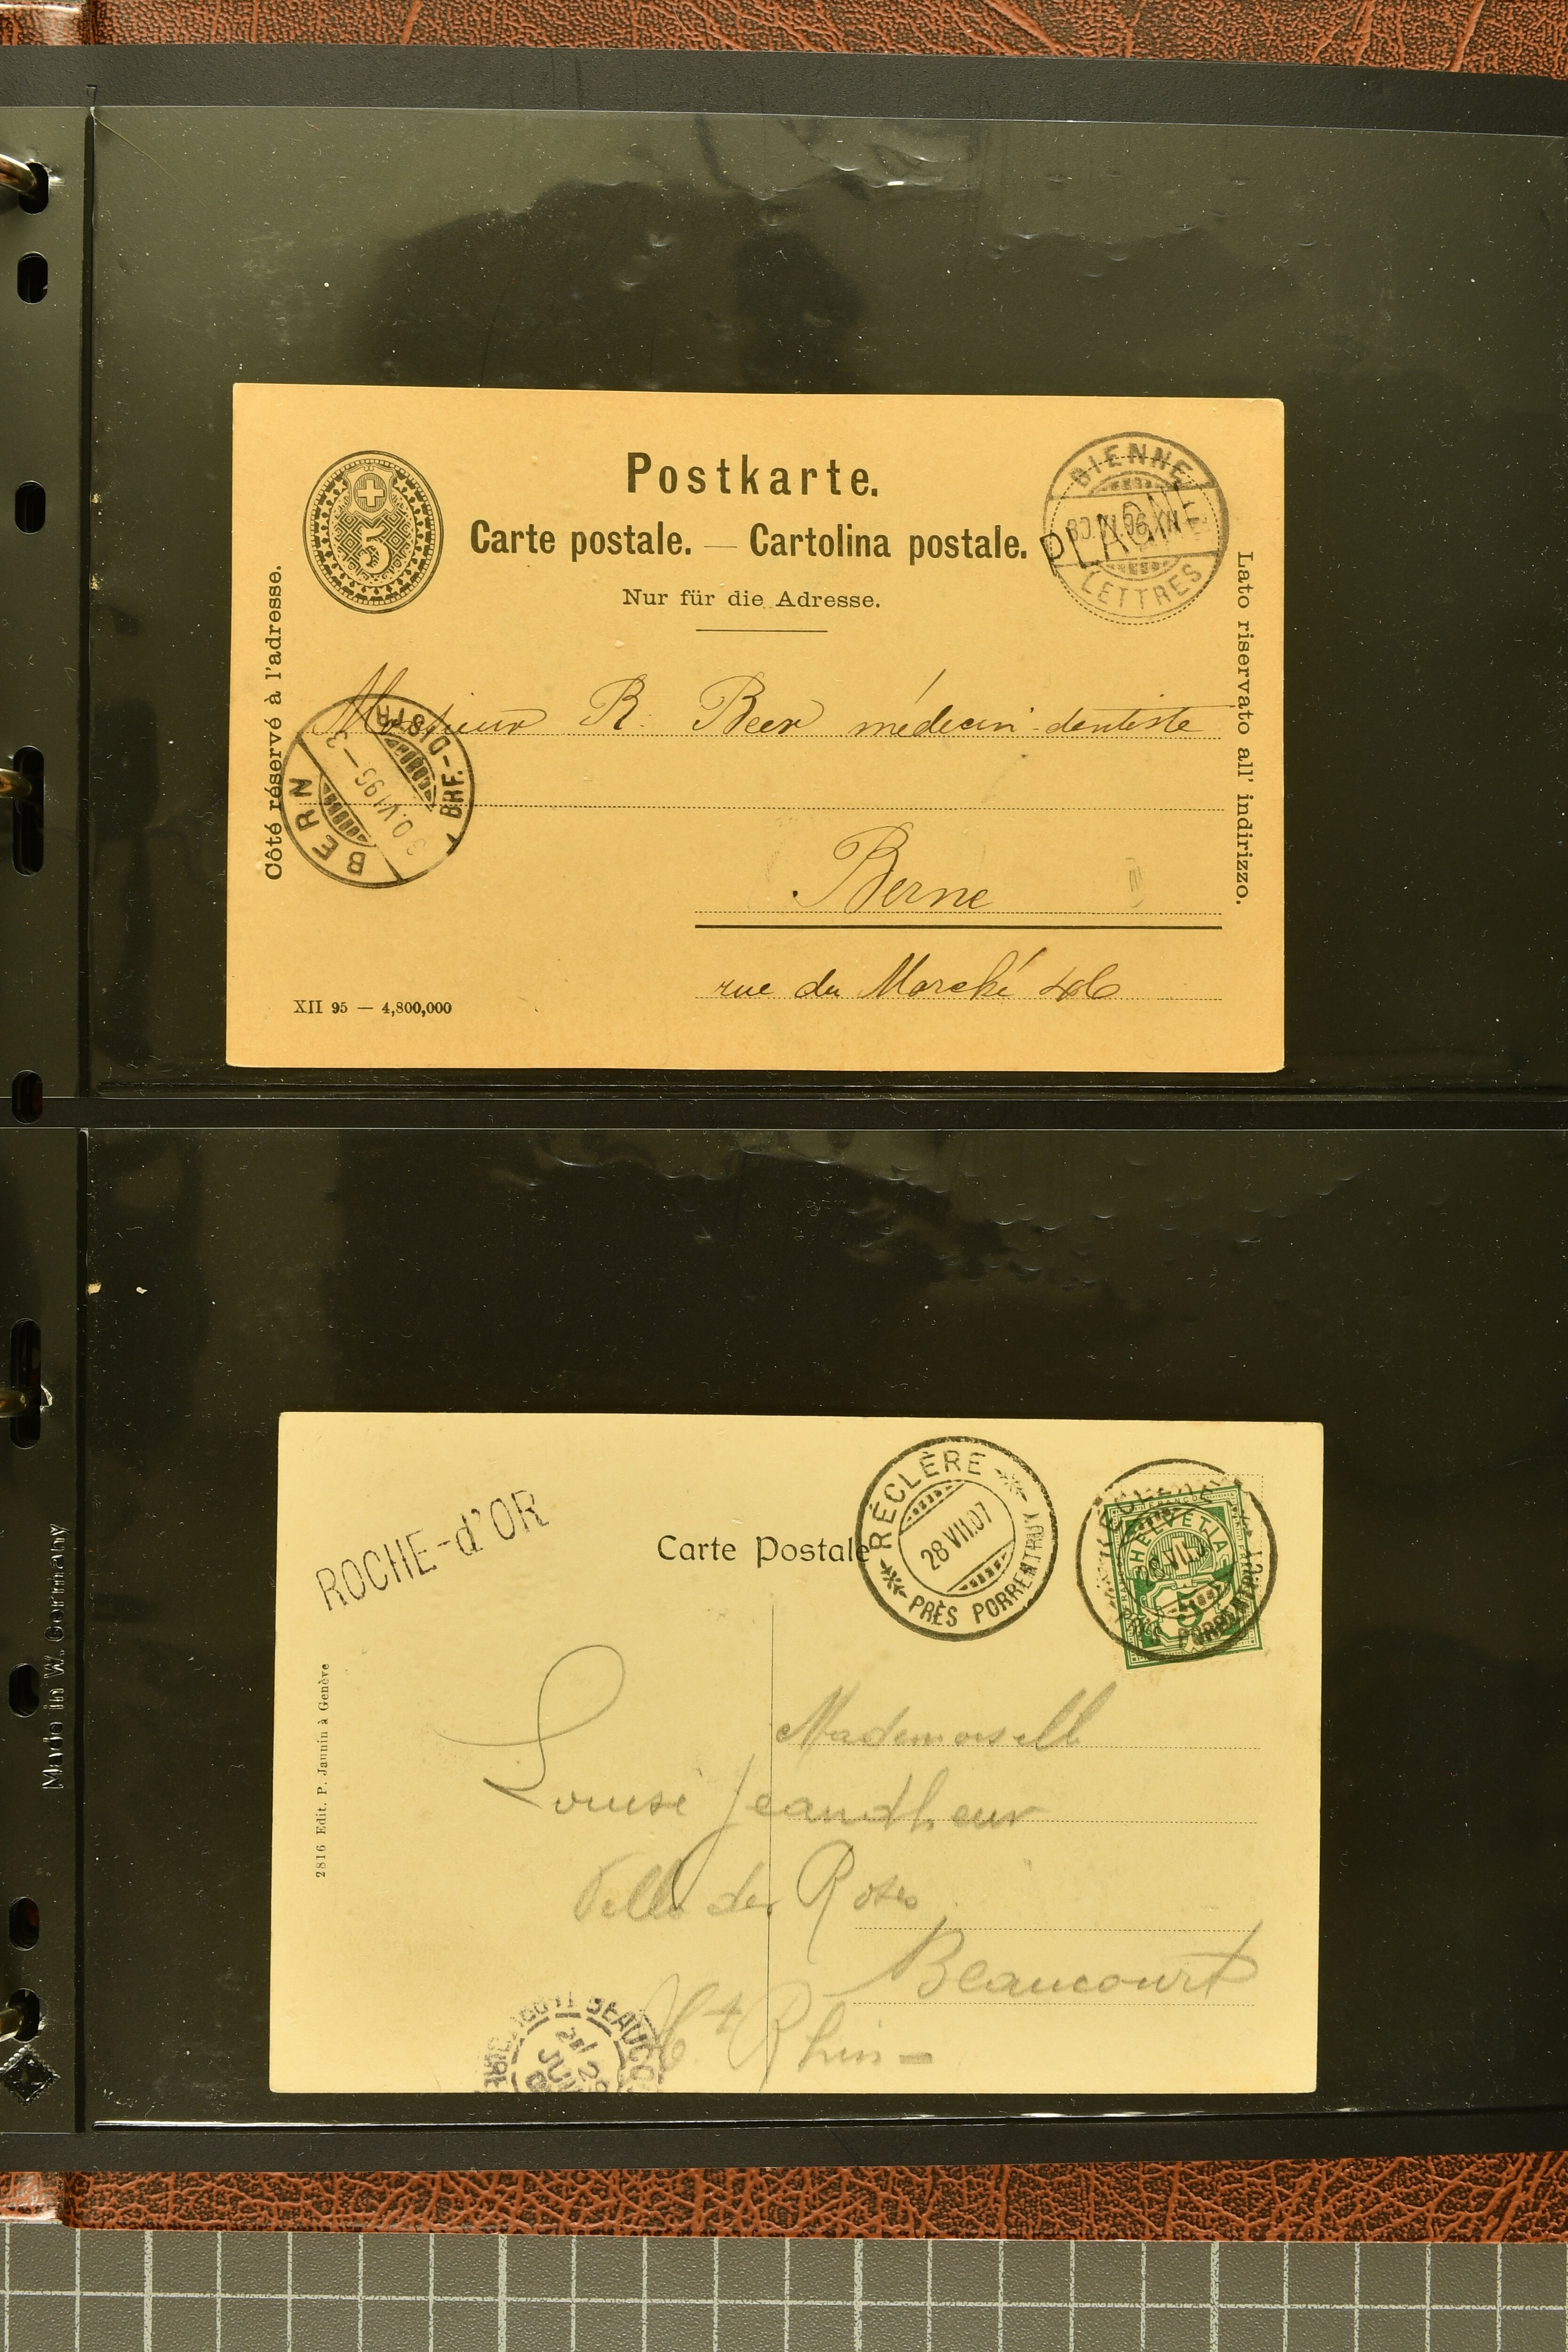 Postkarte.
Carte postale. — Cartolina postale.
Nur für die Adresse.
5
BIENNE
30.VI.96.XII
LETTRES
PLAGNE
Côté réservé à l'adresse.
Lato riservato all' indirizzo.
Monsieur R. Beer médecin-dentiste
BERN
30.VI.96 — 3
BRF.-DISTR.
Berne
rue du Marché 46
XII 95 — 4,800,000
ROCHE-d'OR
Carte Postale
RÉCLÈRE
28 VII.07
PRÈS PORRENTRUY
HELVETIA
FRANCO
5
PRÈS PORRENTRUY
2816 Edit. P. Jaunin à Genève
Mademoiselle
Louise Jeandheur
des Roses
Beaucourt
Ht Rhin
BEAUCO
Made in W. Germany